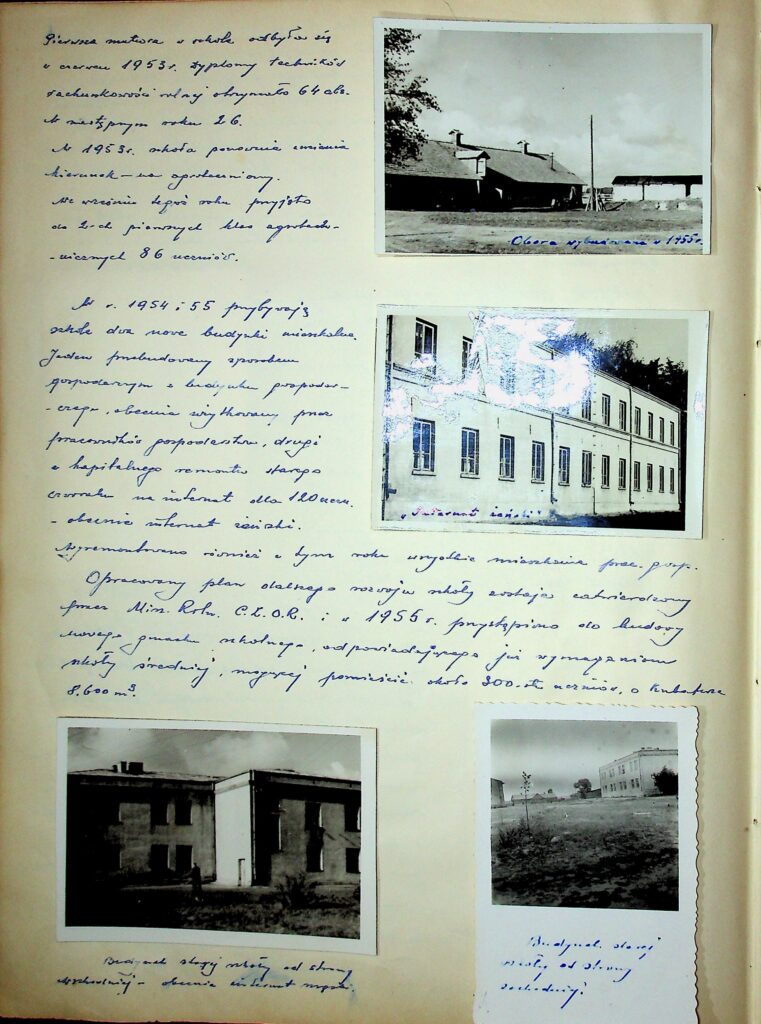 Pierwsza matura w szkole odbyła się
w czerwcu 1953 r. Dyplomy techników
rachunkowości rolnej otrzymało 64 abs.
W następnym roku 26.
W 1953 r. szkoła ponownie zmienia
kierunek – na agrotechniczny.
We wrześniu tegoż roku przyjęto
do 2-ch pierwszych klas agrotech-
-nicznych 86 uczniów.
W r. 1954 i 55 przybywają
szkole dwa nowe budynki mieszkalne.
Jeden przebudowany sposobem
gospodarczym z budynku gospodar-
-czego, obecnie użytkowany przez
pracowników gospodarstwa, drugi
z kapitalnego remontu starego
na internat dla 120 uczn.
- obecnie internat żeński.
Wyremontowano również w tym roku wszystkie mieszkania prac. gosp.
Opracowany plan dalszego rozwoju szkoły zostaje zatwierdzony
przez Min. Roln. C.Z.O.R. i w 1955 r. przystąpiono do budowy
nowego gmachu szkolnego, odpowiadającego już wymaganiom
szkoły średniej, mogącej pomieścić około 300-stu uczniów, o kubaturze
8.600 m³.
Obora wybudowana w 1955 r.
"Internat żeński"
Budynek starej szkoły od strony
wschodniej – obecnie internat męski.
Budynek starej
szkoły od strony
zachodniej.